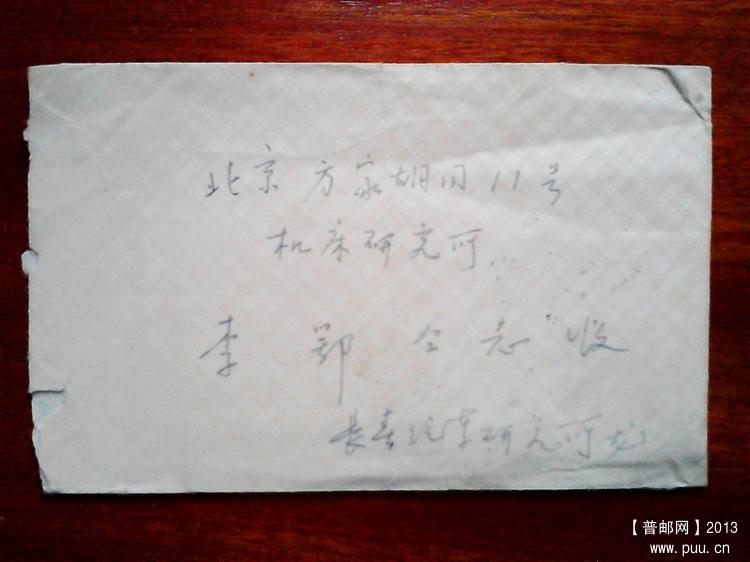 北京方家胡同11号
机床研究所
李鄂同志收
长春汽车研究所龙
【普邮网】2013
www.puu.cn